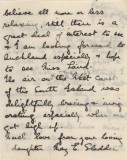 believe all more or less
relaxing, still there is a
great deal of interest to see
& I am looking forward to
Auckland especially & hope
to see Miss
The air on the West Coast
of the South Island was
delightfully bracing & invig
orating especially when we
got high up.
Much love from your loving
daughter May E.